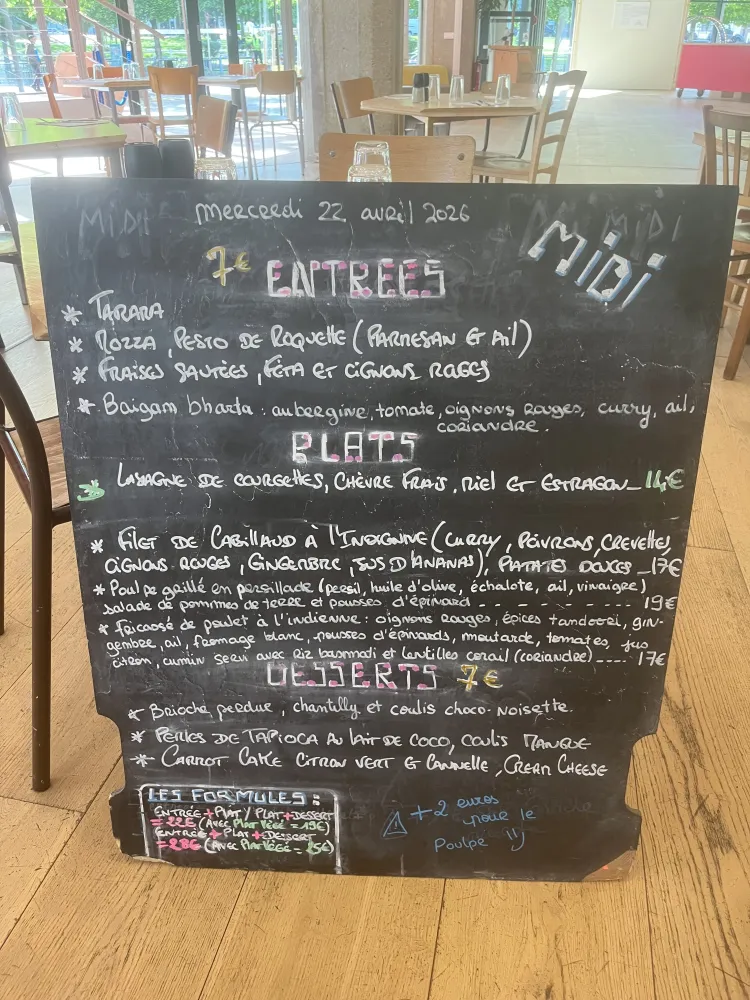 MIDI
mercredi 22 avril 2026
MIDI
MiDi
7€ ENTREES
* TARAMA
* MOZZA, PESTO DE ROQUETTE (PARMESAN ET AIL)
* FRAISES SAUTÉES, FÉTA ET OIGNONS ROUGES
* Baigam bharta : aubergine, tomate, oignons rouges, curry, ail,
coriandre.
PLATS
LASAGNE DE COURGETTES, CHÈVRE FRAIS, MIEL ET ESTRAGON_ 14€
* FILET DE CABILLAUD À L'INDIENNE (CURRY, POIVRONS, CREVETTES,
OIGNONS ROUGES, GINGEMBRE, JUS D'ANANAS), PATATES DOUCES _17€
* Poulpe grillé en persillade (persil, huile d'olive, échalote, ail, vinaigre)
salade de pommes de terre et pousses d'épinard - - - - - - - - - - 19€
* fricassé de poulet à l'indienne : oignons rouges, épices tandoori, gin-
gembre, ail, fromage blanc, pousses d'épinards, moutarde, tomates, jus
citron, cumin servi avec riz basmadi et lentilles corail (coriandre) ---- 17€
DESSERTS 7€
* Brioche perdue, chantilly et coulis choco-noisette.
* PERLES DE TAPIOCA AU LAIT DE COCO, COULIS MANGUE
* CARROT CAKE CITRON VERT & CANNELLE, CREAM CHEESE
LES FORMULES :
ENTRÉE + PLAT / PLAT + DESSERT
= 22€ (AVEC PLAT VÉGÉ = 19€)
ENTRÉE + PLAT + DESSERT
= 28€ (AVEC PLAT VÉGÉ = 25€)
⚠ + 2 euros
pour le
Poulpe !!